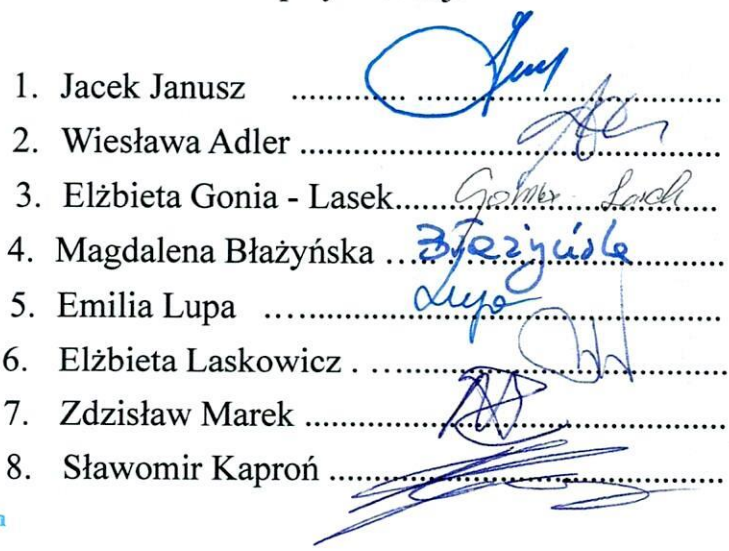 1. Jacek Janusz ..............................
2. Wiesława Adler ..............................
3. Elżbieta Gonia - Lasek..............................
4. Magdalena Błażyńska .............................. Błażyńska
5. Emilia Lupa .............................. Lupa
6. Elżbieta Laskowicz ..............................
7. Zdzisław Marek ..............................
8. Sławomir Kaproń ..............................